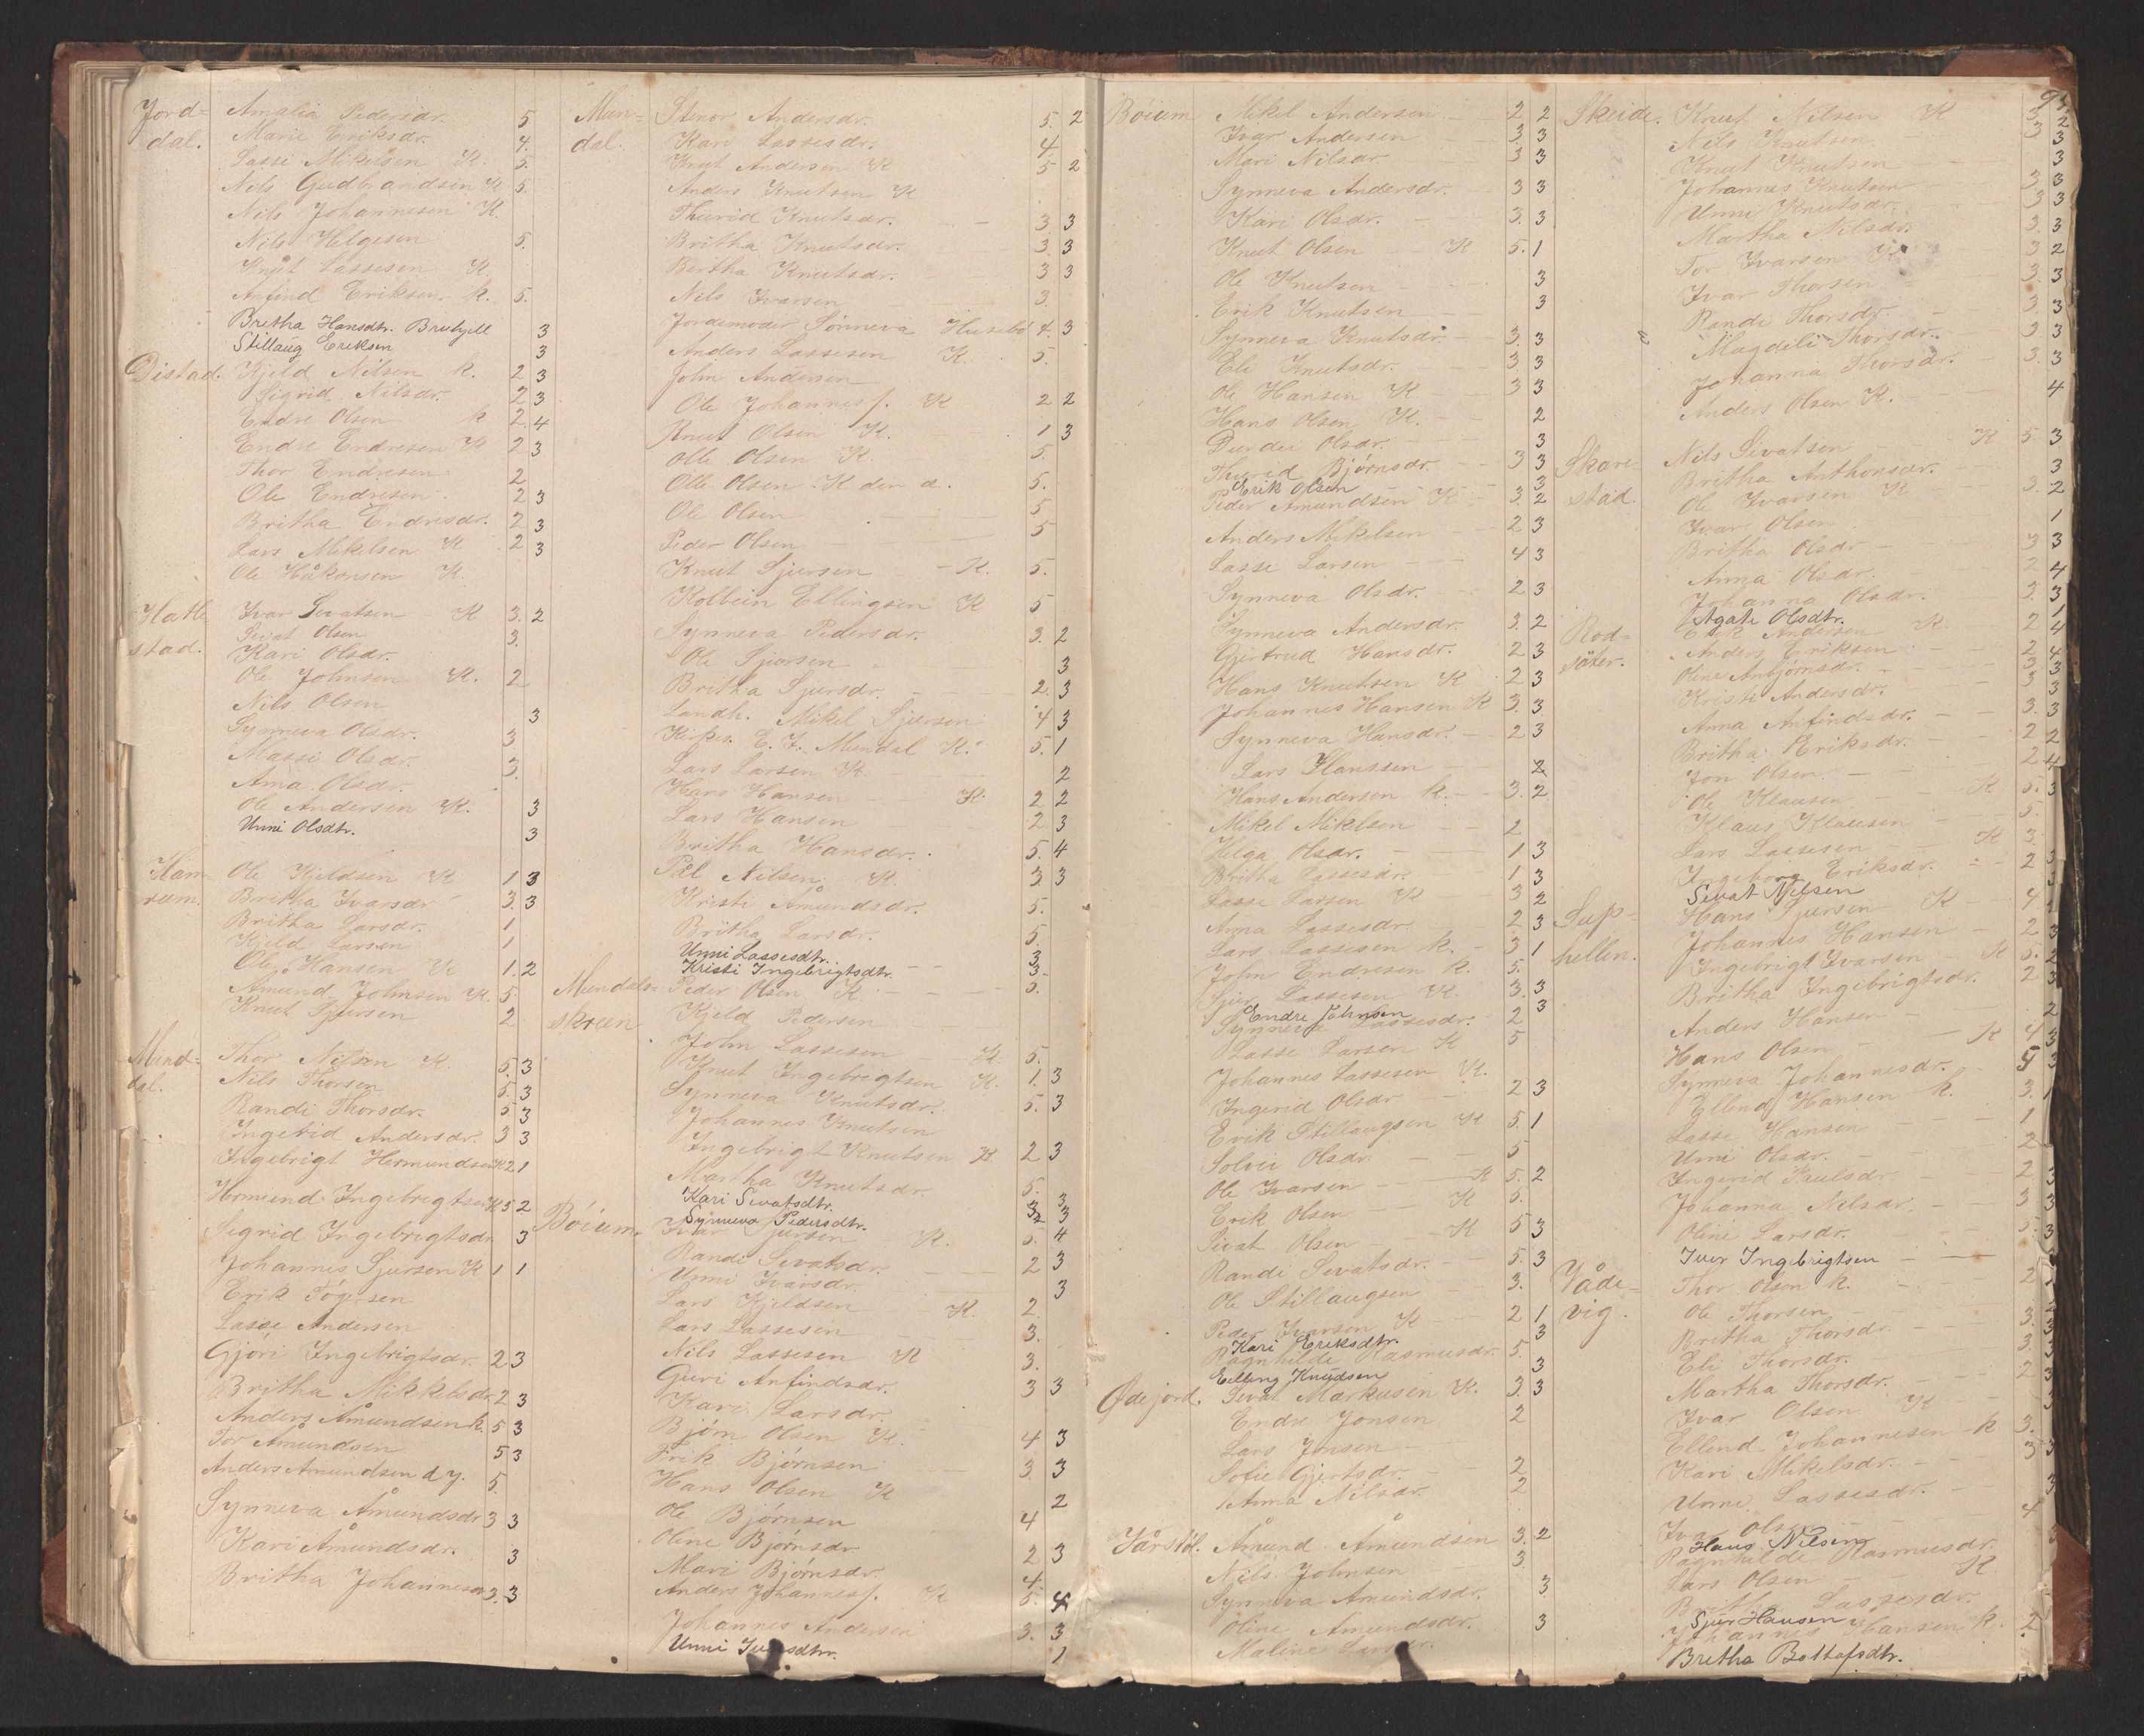 Jord= Amalia Pedersdr. 5
dal. Marie Eriksdr. 4.
Lasse Mikelsen K. 5.
Nils Gudbrandsen K 5.
Nils Johannesen K.
Nils Helgesen 5.
Knut Lassesen K.
Anfind Eriksen. k. 5.
Bretha Hansdtr. 3
Stillaug Eriksen 3
Distad. Kjeld Nilsen k. 2 3
Sigrid Nilsdr. 2 3
Endre Olsen k 2. 4
Endre Endresen K 2 3
Thor Endresen 2
Ole Endresen. 2 3
Britha Endresdr. 2 3
Lars Mikelsen K 2 3
Ole Håkonsen K.
Hatle Ivar Sevatsen K 3. 2
stad. Sevat Olsen 3.
Kari Olsdr.
Ole Johnsen K. 2
Nils Olsen 3
Synneva Olsdr. 3
Massi Olsdr. 3.
Anna Olsdr.
Ole Andersen K. 3
Unni Olsdtr. 3
Ham Ole Kjeldsen K 1 3
rum. Britha Ivarsdr 3. 3
Britha Larsdr. 1
Kjeld Larsen 1
Ole Hansen K 1. 2
Åmund Johnsen K. 5.
Knut Sjursen 2
Mund= Thor Nilsen K. 5. 3
dal. Nils Thorsen 5. 3
Randi Thorsdr. 5 3
Ingerid Andersdr. 3 3
Ingebrigt Hermundsen K 2 1
Hermund Ingebrigtsen K 5 2
Sigrid Ingebrigtsdr 3
Johannes Sjursen K 1 1
Erik Tögersen
Lasse Andersen
Gjöri Ingebrigtsdr. 2 3
Britha Mikkelsdr. 2 3
Anders Åmundsen k. 5 3
Tor Åmundsen 5 3
Anders Åmundsen d y. 5.
Synneva Åmundsdr 3 3
Kari Åmundsdr. 3
Britha Johannesdr 3. 3
Mun= Stenor Andersdr. 5. 2
dal. Kari Lassesdr. 4
Knut Andersen K 5 2
Anders Knutsen K
Thurid Knutsdr. 3. 3
Britha Knutsdr. 3. 3
Bertha Knutsdr. 3 3
Nils Ivarsen 3.
Jordemoder Sønneva Husebö 4. 3
Anders Lassesen K. 5.
John Andersen
Ole Johannesf. K 2 2
Knut Olsen K. 1 3
Olle Olsen K. 5.
Olle Olsen K den æ. 5.
Ole Olsen 5
Peder Olsen 5
Knut Sjursen K. 5.
Kolbein Ellingsen K 5
Synneva Pedersdr. 3. 2
Ole Sjursen 3
Britha Sjursdr. 2. 3
Landh. Mikel Sjursen 4 3
Kirkes. E. J. Mundal K. 5. 1
Lars Larsen K. 2
Hans Hansen K. 2 2
Lars Hansen 2 3
Britha Hansdr. 5. 4
Pål Nilsen K. 3. 3
Kristi Åmundsdr. 5.
Britha Larsdr. 5.
Unni Lassesdtr. 3
Kristi Ingebrigtsdtr. 3
Mundals= Peder Olsen K 5.
skreen Kjeld Pedersen
John Lassesen K. 5.
Knut Ingebrigtsen K. 1. 3
Synneva Knutsdr. 5. 3
Johannes Knutsen
Ingebrigt Knutsen K 2 3
Martha Knutsdr. 5.
Kari Sevatsdtr. 3
Synneva Pedersdtr. 3
Böium. Ivar Sjursen K. 5. 4
Randi Sevatsdr. 2 3
Unni Ivarsdr. 3
Lars Kjeldsen K. 2
Lars Lassesen 3.
Nils Lassesen K 3.
Guri Anfindsdr. 3 3
Kari Larsdr.
Bjørn Olsen K. 4 3
Erik Bjørnsen 3. 3
Hans Olsen K 2
Ole Bjørnsen 4
Oline Bjørnsdr 2 3
Mari Bjørnsdr. 4.
Anders Johannesf. K 5. 4
Johannes Andersen 3. 3
Unni 1
Böium Mikel Andersen 2 2
Ivar Andersen 3. 3
Mari Nilsdr 3 3
Synneva Andersdr. 3 3
Kari Olsdr. 3. 3
Knut Olsen K 5. 1
Ole Knutsen 3
Erik Knutsen 3
Synneva Knutsdr. 3. 3
Eli Knutsdr. 3 3
Ole Hansen K 3 3
Hans Olsen K. 2
Durdei Olsdr. 3
Thurid Bjørnsdr. 3 3
Erik Olsen 3
Peder Amundsen K 3. 2
Anders Mikelsen 2 3
Lasse Larsen 4 3
Synneva Olsdr. 2 3
Synneva Andersdr. 3 2
Gjertrud Hansdr. 2 3
Hans Knutsen K 2 3
Johannes Hansen K 3. 3
Synneva Hansdr. 2 3
Lars Hanssen 2
Hans Andersen k. 3. 2
Mikel Mikelsen 2
Helga Olsdr. 1 3
Britha Lassesdr. 1 3
Lasse Larsen K 3 2
Anna Lassesdr 2 3
Lars Lassesen k. 3 1
John Endresen k. 5.
Sjur Lassesen K. 3. 3
Endre Johnsen 3
Synneva Lassesdr. 2
Lasse Larsen K 5
Johannes Lassesen K.
Ingerid Olsdr 2 3
Erik Stillaugsen K 5. 1
Solvei Olsdr. 5
Ole Ivarsen K 5. 2
Erik Olsen K 5.
Sivat Olsen K 5 3
Randi Sevatsdr. 5. 3
Ole Stillaugsen 3.
Peder Ivarsen K 2 1
Kari Eriksdtr. 3
Ragnhilde Rasmusdr. 5.
Elling Knudsen 3
Ødejord. Sevat Markusen K. 3. 3
Endre Jonsen 2
Lars Jonsen
Sofie Gjertsdr. 2
Anna Nilsdr. 2
Jårstöl. Åmund Åmundsen 3. 2
Nils Johnsen 3.
Synneva Amundsdr. 3
Oline Amundsdr. 3
Maline
Skeide. Knut Nilsen K 3. 2
Nils Knutsen 3 3
Knut Knutsen 3
Johannes Knutsen 3. 3
Unni Knutsdr. 3 3
Martha Nilsdr. 3. 3
Tor Ivarsen K 3 2
Ivar Thorsen 3. 3
Randi Thorsdr 3. 3
Magdeli Thorsdr. 3 3
Johanna Thorsdr. 3. 3
Anders Olsen K. 4
Skare= Nils Sevatsen K 5. 3
stad. Britha Anthonsdr. 3
Ole Ivarsen K 3. 2
Ivar Olsen 1
Britha Olsdr 3 3
Anna Olsdr. 2 4
Johanna Olsdr. 3. 3
Agate Olsdtr. 1
Rod= Erik Andersen K. 2 4
säter. Anders Eriksen 2 4
Oline Anbjørnsdr. 3 3
Kristi Andersdr. 3 3
Anna Anfindsdr. 3. 3
Britha Eriksdr. 2 2
Jon Olsen 2 4
Ole Klausen K 5. 3
Klaus Klausen 5.
Lars Lassesen K 3.
Ingeborg Eriksdr. 2 3
Sevat Nilsen
Sup= Hans Sjursen K 4
hellen. Johannes Hansen 2
Ingebrigt Ivarsen K 5.
Britha Ingebrigtsdr. 2 3
Anders Hansen 2
Hans Olsen K 4 3
Synneva Johannesdr. 5 3
Ellend Hansen k. 3. 1
Lasse Hansen 1
Unni Olsdr. 2
Ingerid Paulsdr. 2 3
Johanna Nilsdr. 3 3
Oline Larsdr. 5. 3
Iver Ingebrigtsen
Våde= Thor Olsen k. 2
vig. Ole Thorsen
Britha Thorsdr 3.
Eli Thorsdr. 3.
Martha Thorsdr. 2
Ivar Olsen K
Ellend Johannesen k 3.
Kari Mikelsdr. 3 3
Unni Lassesdr. 3
Ivar Olsen 4
Hans Nilsen 3
Ragnhilde Rasmusdr.
Lars Olsen K
Lassesdr.
Sjur Hansen
Johannes Hansen k. 2
Bretha Bottofsdtr.